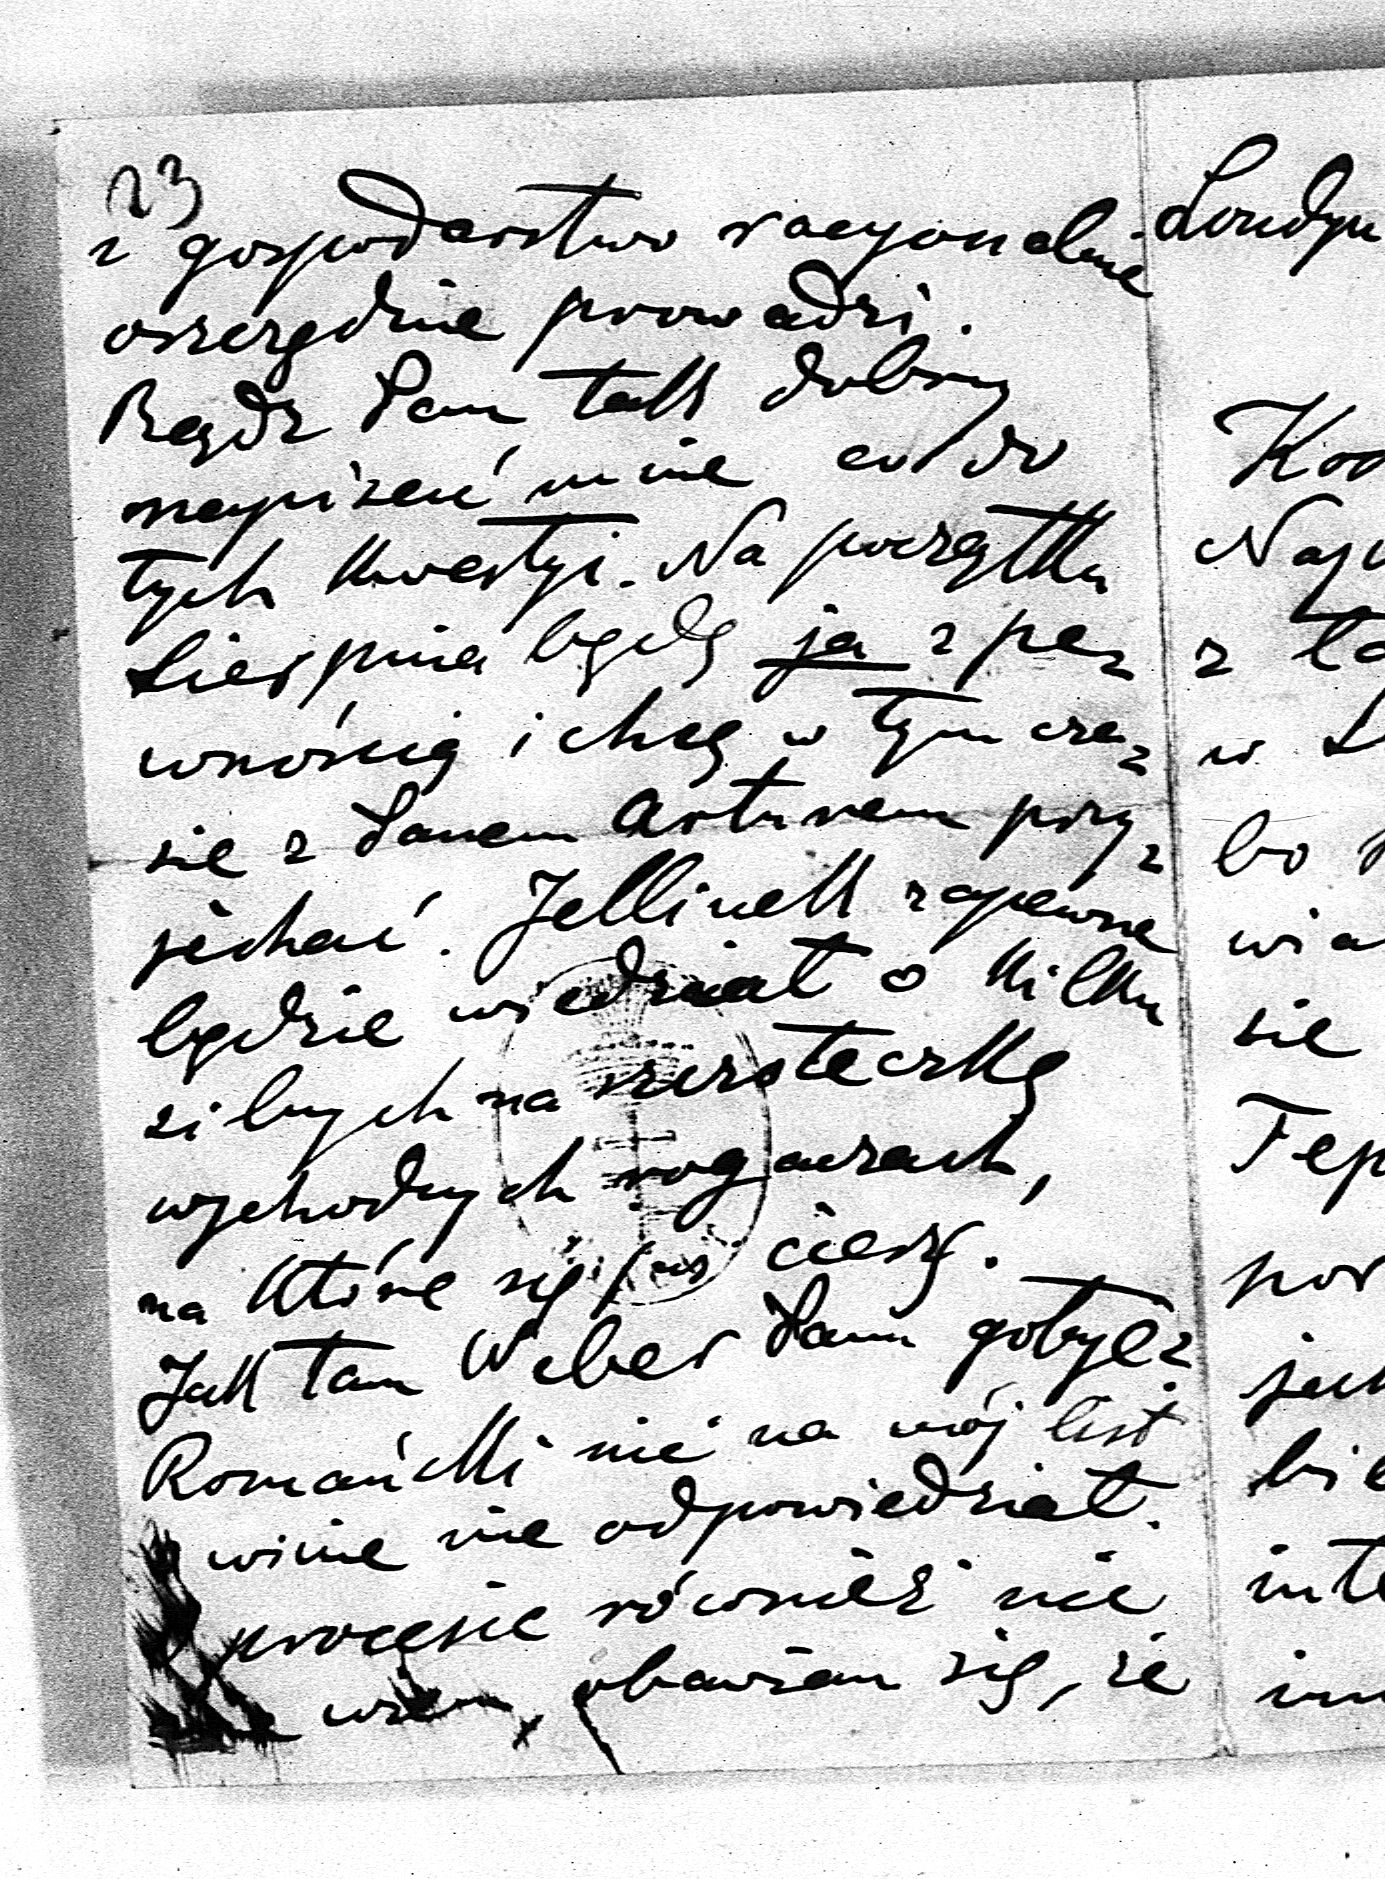 23
i gospodarstwo racyonalnie
oszczędnie prowadzi.
Bądź Pan tak dobry
napisać mnie co do
tych kwestyi. Na początku
Sierpnia będę ja z pe=
wnością i chcę w tym cza=
sie z Panem Arturem przy=
jechać. Jellinek zapewne
będzie wiedział o kilku
silnych na szósteczkę
wychodnych rogaczach,
na które się już cieszę.
Jak tam Weber Panu
Romański nic na mój list
winie nie odpowiedział.
procesie również nie
wiem, obawiam się, że
Londyn
Ko
Naj
z ta
w
bo
wia
sie
Tep
por
jech
bie
inte